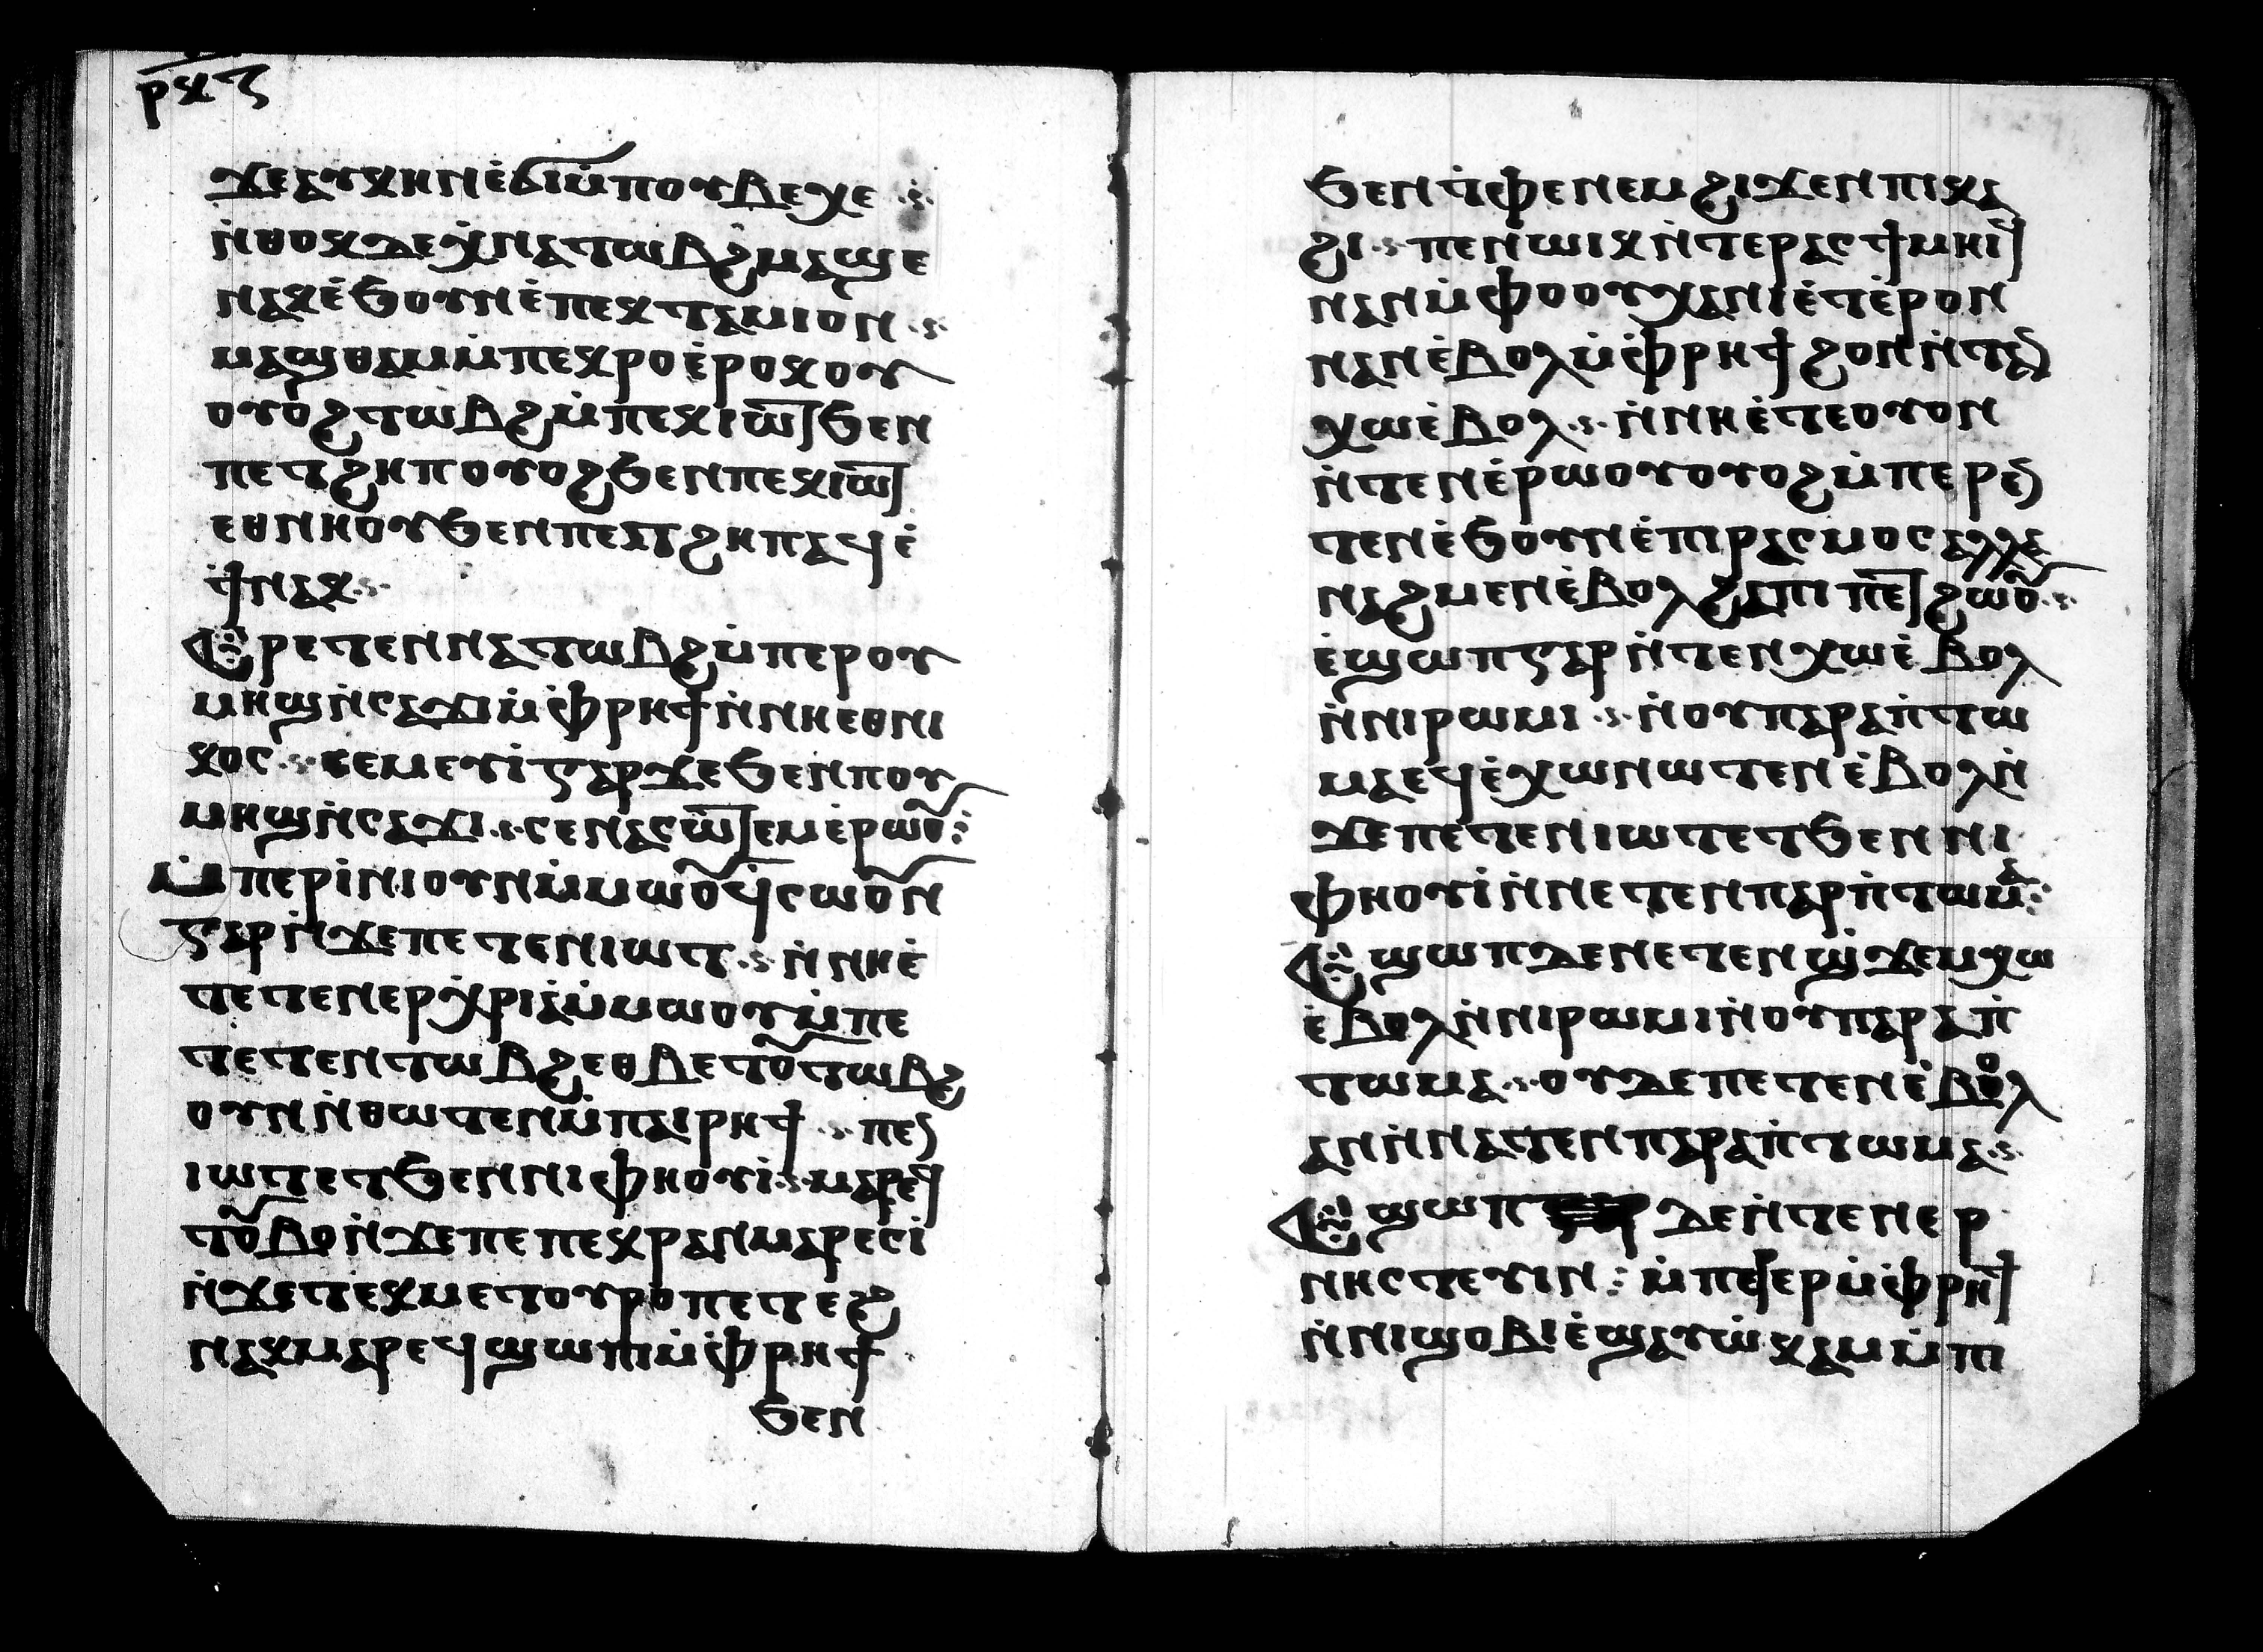 ⲣⲕⲍ
ϫⲉⲁⲩⲕⲏⲛⲉ̀ϭⲓⲙ̀ⲡⲟⲩⲃⲉⲭⲉ
ⲛ̀ⲑⲟⲕⲇⲉⲭ̀ⲛⲁⲧⲱⲃϩⲙⲁϣⲉ
ⲛⲁⲕⲉ̀ϧⲟⲩⲛⲉ̀ⲡⲉⲕⲧⲁⲙⲓⲟⲛ
ⲙⲁϣⲑⲁⲙⲙ̀ⲡⲉⲕⲣⲟⲉ̀ⲣⲟⲕⲟⲩ
ⲟⲩⲟϩⲧⲱⲃϩⲙ̀ⲡⲉⲕⲓⲱⲧϧⲉⲛ
ⲡⲉⲧϩⲏⲡⲟⲩⲟϩϧⲉⲛⲡⲉⲕⲓⲱⲧ
ⲉⲑⲛⲏⲟⲩϧⲉⲛⲡⲉⲧϩⲏⲡⲁϥⲉ̀
ϯⲛⲁⲕ
Ⲉⲣⲉⲧⲉⲛⲛⲁⲧⲱⲃϩⲙ̀ⲡⲉⲣⲟⲩ
ⲙⲏϣⲛ̀ⲥⲁϫⲓⲙ̀ⲫ̀ⲣⲏϯⲛ̀ⲛⲏⲉⲑⲛⲓ
ⲕⲟⲥ ⲥⲉⲙⲉⲩⲓ̀ⲅⲁⲣϫⲉϧⲉⲛⲡⲟⲩ
ⲙⲏϣⲛ̀ⲥⲁϫⲓ ⲥⲉⲛⲁⲥⲱⲧⲉⲙⲉ̀ⲣⲱⲟⲩ
ⲙ̀ⲡⲉⲣⲓ̀ⲛⲓⲟⲩⲛⲙ̀ⲙⲱⲟⲩϥ̀ⲥⲱⲟⲩⲛ
ⲅⲁⲣⲛ̀ϫⲉⲡⲉⲧⲉⲛⲓⲱⲧ ⲛ̀ⲛⲏⲉ̀
ⲧⲉⲧⲉⲛⲉⲣⲭ̀ⲣⲓⲁ̀ⲙ̀ⲙⲱⲟⲩⲙ̀ⲡⲉ
ⲧⲉⲧⲉⲛⲧⲱⲃϩⲉⲑⲃⲉⲧⲟⲩⲧⲱⲃϩ
ⲟⲩⲛⲛ̀ⲑⲱⲧⲉⲛⲙ̀ⲡⲁⲓⲣⲏϯ ⲡⲉⲛ
ⲓⲱⲧⲉⲧϧⲉⲛⲛⲓⲫⲏⲟⲩⲓ̀ ⲙⲁⲣⲉϥ
ⲧⲟⲩⲃⲟⲛ̀ϫⲉⲡⲉⲡⲉⲕⲣⲁⲛⲙⲁⲣⲉⲥⲓ̀
ⲛ̀ϫⲉⲧⲉⲕⲙⲉⲧⲟⲩⲣⲟⲡⲉⲧⲉϩ
ⲛⲁⲕⲙⲁⲣⲉϥϣⲱⲡⲓⲙ̀ⲫ̀ⲣⲏϯ
ϧⲉⲛ
ϧⲉⲛⲧ̀ⲫⲉⲛⲉⲙϩⲓϫⲉⲛⲡⲓⲕⲁ
ϩⲓ ⲡⲉⲛⲱⲓⲕⲛ̀ⲧⲉⲣⲁⲥϯⲙⲏⲓϥ
ⲛⲁⲛⲙ̀ⲫⲟⲟⲩⲭⲁⲛⲓⲉ̀ⲧⲉ̀ⲣⲟⲛ
ⲛⲁⲛⲉ̀ⲃⲟⲗⲙ̀ⲫ̀ⲣⲏϯϩⲟⲛⲛ̀ⲧⲁⲛ
ⲭⲱⲉ̀ⲃⲟⲗ ⲛ̀ⲛⲏⲉ̀ⲧⲉⲟⲩⲟⲛ
ⲛ̀ⲧⲉⲛⲉ̀ⲣⲱⲟⲩⲟⲩⲟϩⲙ̀ⲡⲉⲣⲉⲛ
ⲧⲉⲛⲉ̀ϧⲟⲩⲛⲉ̀ⲡⲓⲣⲁⲥⲙⲟⲥⲁⲗⲗⲁ
ⲛⲁϩⲙⲉⲛⲉ̀ⲃⲟⲗϩⲁⲡⲓⲡⲉⲧϩⲱⲟⲩ
ⲉ̀ϣⲱⲡⲅⲁⲣⲛ̀ⲧⲉⲛⲭⲱⲉ̀ⲃⲟⲗ
ⲛ̀ⲛⲓⲣⲱⲙⲓ ⲛ̀ⲟⲩⲡⲁⲣⲁⲡ̀ⲧⲱ
ⲙⲁⲉϥⲉ̀ⲭⲱⲛⲱⲧⲉⲛⲉ̀ⲃⲟⲗⲛ̀
ϫⲉⲡⲉⲧⲉⲛⲓⲱⲧⲉⲧϧⲉⲛⲛⲓ
ⲫⲏⲟⲩⲓ̀ⲛ̀ⲛⲉⲧⲉⲛⲡⲁⲣⲡ̀ⲧⲱⲙⲁ
Ⲉϣⲱⲡⲇⲉⲛⲉⲧⲉⲛϣ̀ϫⲉⲙⲭⲱ
ⲉ̀ⲃⲟⲗⲛ̀ⲛⲓⲣⲱⲙⲓⲛ̀ⲟⲩⲡⲁⲣⲁⲡ̀
ⲧⲱⲙⲁ ⲟⲩⲇⲉⲡⲉⲧⲉⲛⲉ̀ⲃⲟⲗ
ⲁⲛⲛ̀ⲛⲁⲧⲉⲛⲡⲁⲣⲁⲡ̀ⲧⲱⲙⲁ
Ⲉϣⲱⲡ ⲇⲉⲛ̀ⲧⲉⲛⲉⲣ
ⲛⲏⲥⲧⲉⲩⲓⲛ ⲙ̀ⲡⲉϥⲉⲣⲙ̀ⲫ̀ⲣⲏϯ
ⲛ̀ⲛⲓϣⲟⲃⲓⲉ̀ϣⲁⲩⲱ̀ⲕⲁⲙⲙ̀ⲡⲓ